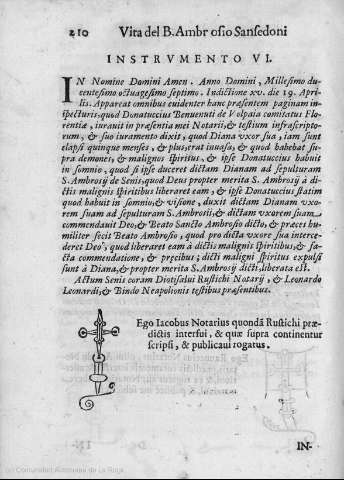 210 Vita del B. Ambrosio Sansedoni
INSTRVMENTO VI.
IN Nomine Domini Amen. Anno Domini, Millesimo du-
centesimo octuagesimo septimo. Indictione xv. die 19. Apri-
lis. Appareat omnibus euidenter hanc præsentem paginam in-
specturis, quod Donatuccius Benuenuti de Volpaia comitatus Flo-
rentiæ, iurauit in præsentia mei Notarij, & testium infrascripto-
rum, & suo iuramento dixit, quod Diana vxor sua, iam sunt
elapsi quinque menses, & plus, erat inuasa, & quod habebat su-
pra demones, & malignos spiritus, & ipse Donatuccius habuit
in somnio, quod si ipse duceret dictam Dianam ad sepulturam
S. Ambrosij de Senis, quod Deus propter merita S. Ambrosij à di-
ctis malignis spiritibus liberaret eam, & ipse Donatuccius statim
quod habuit in somnio, & visione, duxit dictam Dianam vxo-
rem suam ad sepulturam S. Ambrosij, & dictam vxorem suam
commendauit Deo, & Beato Sancto Ambrosio dicto, & preces hu-
militer fecit Beato Ambrosio, quod pro dicta vxore sua interce-
deret Deo, quod liberaret eam à dictis malignis spiritibus, & fa-
cta commendatione, & precibus; dicti maligni spiritus expulsi
sunt à Diana, & propter merita S. Ambrosij dicti, liberata est.
Actum Senis coram Diotisalui Rustichi Notarij, & Leonardo
Leonardi, & Bindo Neapolionis testibus præsentibus.
Ego Iacobus Notarius quondã Rustichi præ-
dictis interfui, & quæ supra continentur
scripsi, & publicaui rogatus.
IN-
(c) Comunidad Autónoma de La Rioja